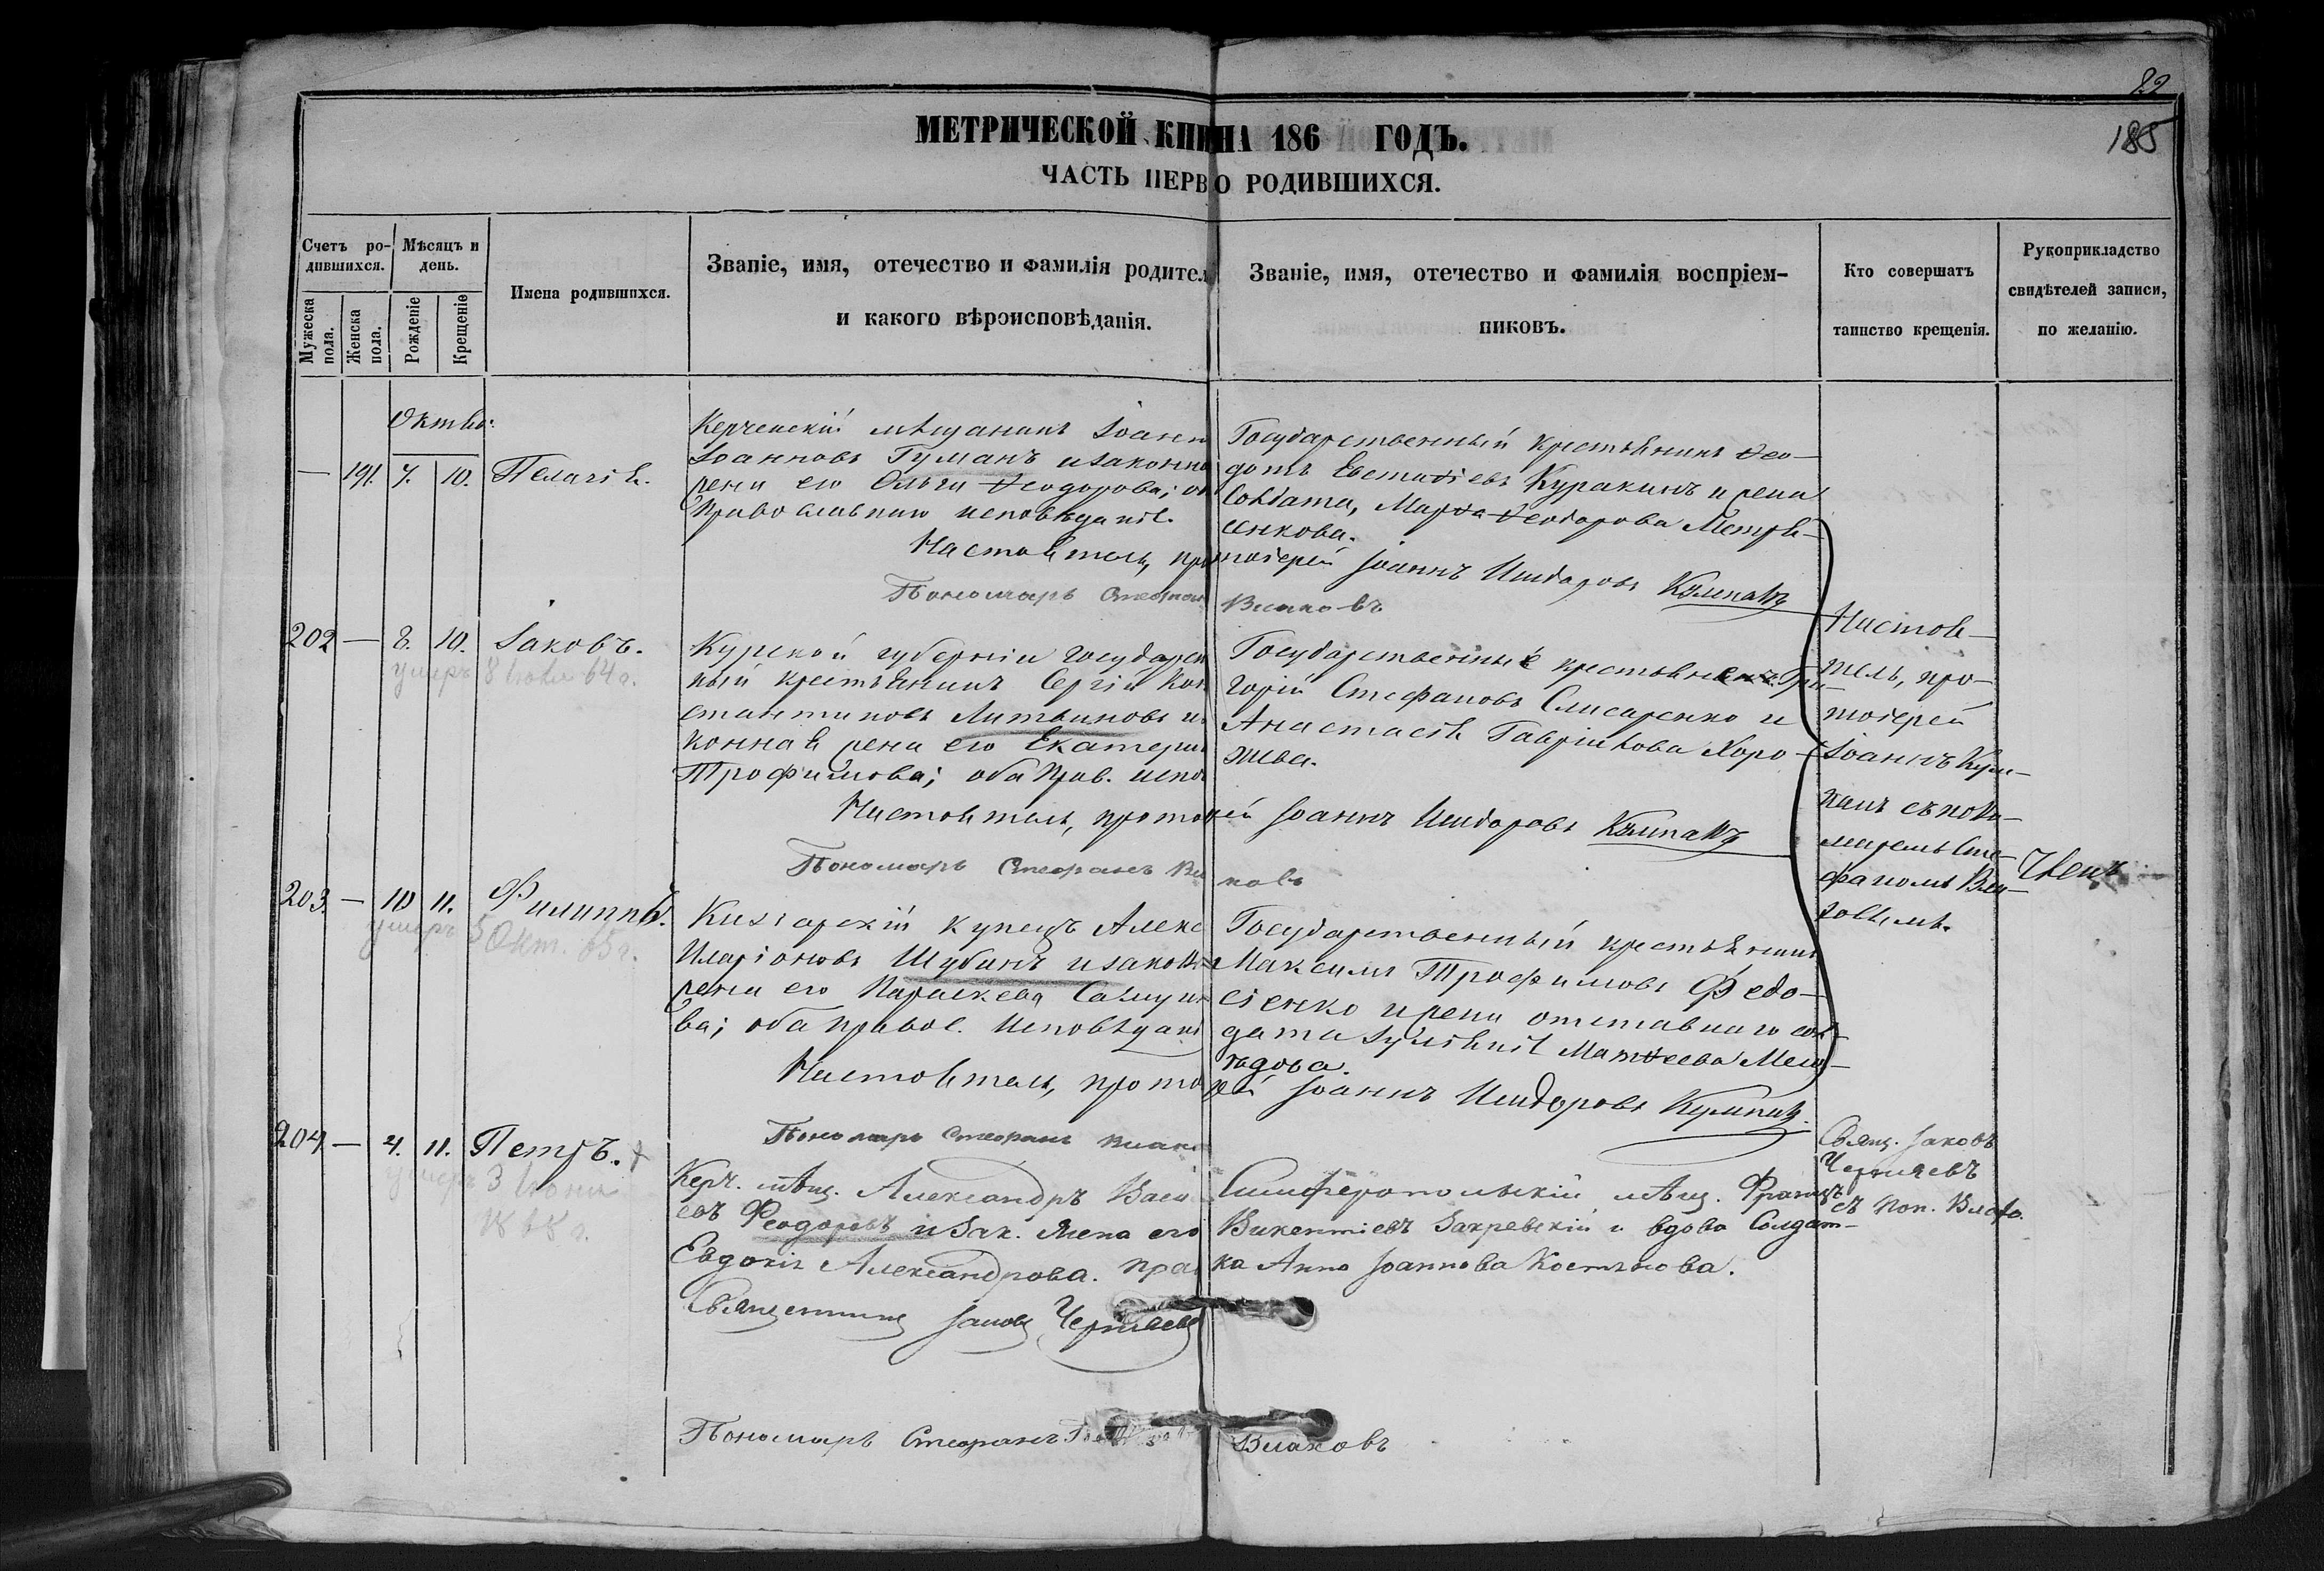 82
185
МЕТРИЧЕСКОЙ КНИ НА 186 ГОДЪ.
ЧАСТЬ ПЕРВО О РОДИВШИХСЯ.
Счетъ ро-
дившихся.
Мужеска пола.
Женска пола.
Мѣсяцъ и
день.
Рожденіе
Крещеніе
Имена родившихся.
Званіе, имя, отечество и фамилія родител
и какого вѣроисповѣданія.
Званіе, имя, отечество и фамилія воспріем-
никовъ.
Кто совершатъ
таинство крещенія.
Рукоприкладство
свидѣтелей записи,
по желанію.
Октяб:
— 191. 7. 10. Пелагія.
Керченскій мѣщанинъ Іоанн
Іоанновъ Гуманъ и законна
жена его Ольга Ѳеодорова; о
Православнаго исповѣданія.
Государственный крестьянинъ Ѳео-
дотъ Евстаѳіевъ Куракинъ и жена
солдата, Марѳа Ѳеодорова Метря-
сенкова.
Настоятель, протоіерей Іоаннъ Исидоровъ Кумпанъ
Пономарь Стефанъ Влаховъ
202 — 8. 10. Іаковъ.
умеръ 8 Іюля 64 г.
Курской губерніи государст
ный крестьянинъ Сергій Кон
стантиновъ Литвиновъ и
конная жена его Екатерин
Трофимова; оба прав. испо
Государственный крестьянинъ Гри-
горій Стефановъ Слисаренко и
Анастасія Гавріилова Хоро-
шева.
Настоятель, протоіерей Іоаннъ Исидоровъ Кумпанъ
Пономарь Стефанъ Влаховъ
Настоя-
тель, про-
тоіерей
Іоаннъ Кум-
панъ съ поно-
маремъ Сте-
фаномъ Вла-
ховымъ.
203. — 10 11. Филиппъ.
умеръ 5 Окт. 65 г.
купецъ Алекс
Иларіоновъ Шубинъ и законн
жена его Параскева
ва; оба правос. исповѣдані
Государственный крестьянинъ
Максимъ Трофимовъ Федо-
сіенко и жена отставнаго сол-
дата Іуліанія Матѳеева
Настоятель, протоіерей Іоаннъ Исидоровъ Кумпанъ.
Пономарь Стефанъ Влахо
204 — 4. 11. Петръ.
умеръ 3 Іюня
Керч. мѣщ. Александръ Васи
евъ Феодоровъ и зак. жена его
Евдокія Александрова. пра
Симферопольскій мѣщ. Францъ
Викентіевъ Закревскій и вдова Солдат-
ка Анна Іоаннова Костькова.
Свящ. Іаковъ
Черняевъ
съ пон. Влахо.
Священникъ Іаковъ Черняевъ
Пономарь Стефанъ Влаховъ